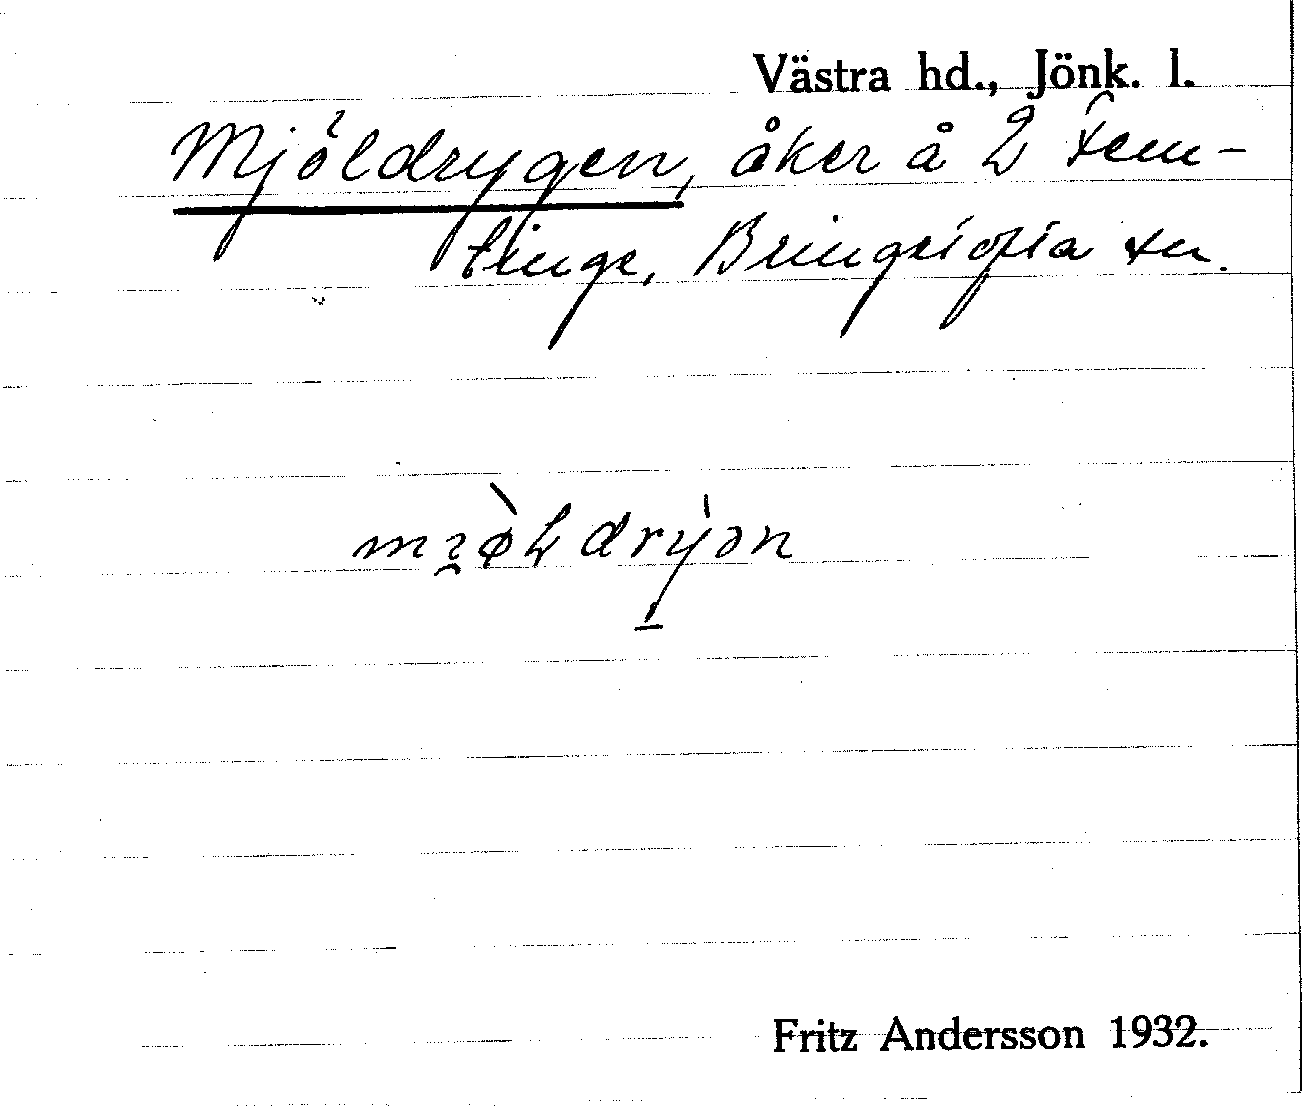 Västra hd., Jönk. l.
Mjöldrygen, åker å 2 Fem-
tinge, Bringetofta sn.
Fritz Andersson 1932.